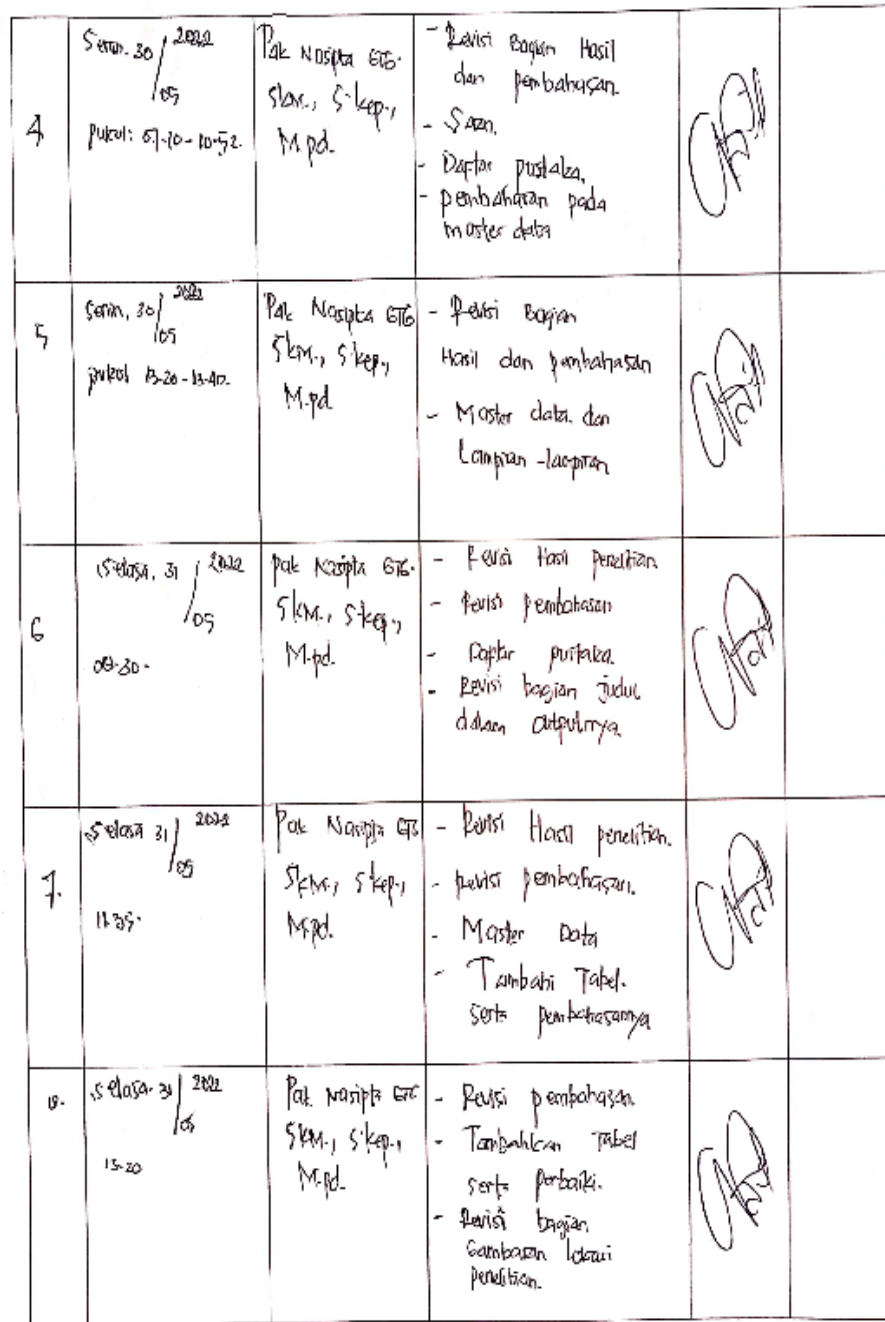 4
Senin. 30/05 2022
pukul: 09-10 - 10-52.
Pak Nasipta GTG.
SKM., S.kep.,
M.pd.
- Revisi Bagian Hasil
dan pembahasan.
- Saran.
- Daftar pustaka.
- pembahasan pada
master data
5
Senin, 30/05 2022
pukul 13-20 - 13-40.
Pak Nasipta GTG
SKM., S.kep.,
M.pd
- Revisi Bagian
Hasil dan pembahasan
- Master data. dan
Lampiran - lampiran
6
Selasa, 31/05 2022
09-30.
pak Nasipta GTG.
SKM., S.kep.,
M.pd.
- Revisi Hasil penelitian
- Revisi pembahasan
- Daftar pustaka.
- Revisi bagian judul
dalam outputnya
7.
Selasa 31/05 2022
11.35.
Pak Nasipta GTG
SKM., S.kep.,
M.pd.
- Revisi Hasil penelitian.
- Revisi pembahasan.
- Master Data
- Tambahi Tabel.
serta pembahasannya
8.
Selasa. 31/05 2022
15-20
Pak Nasipta GTG
SKM., S.kep.,
M.pd.
- Revisi pembahasan
- Tambahkan Tabel
serta perbaiki.
- Revisi bagian
Gambaran lokasi
penelitian.